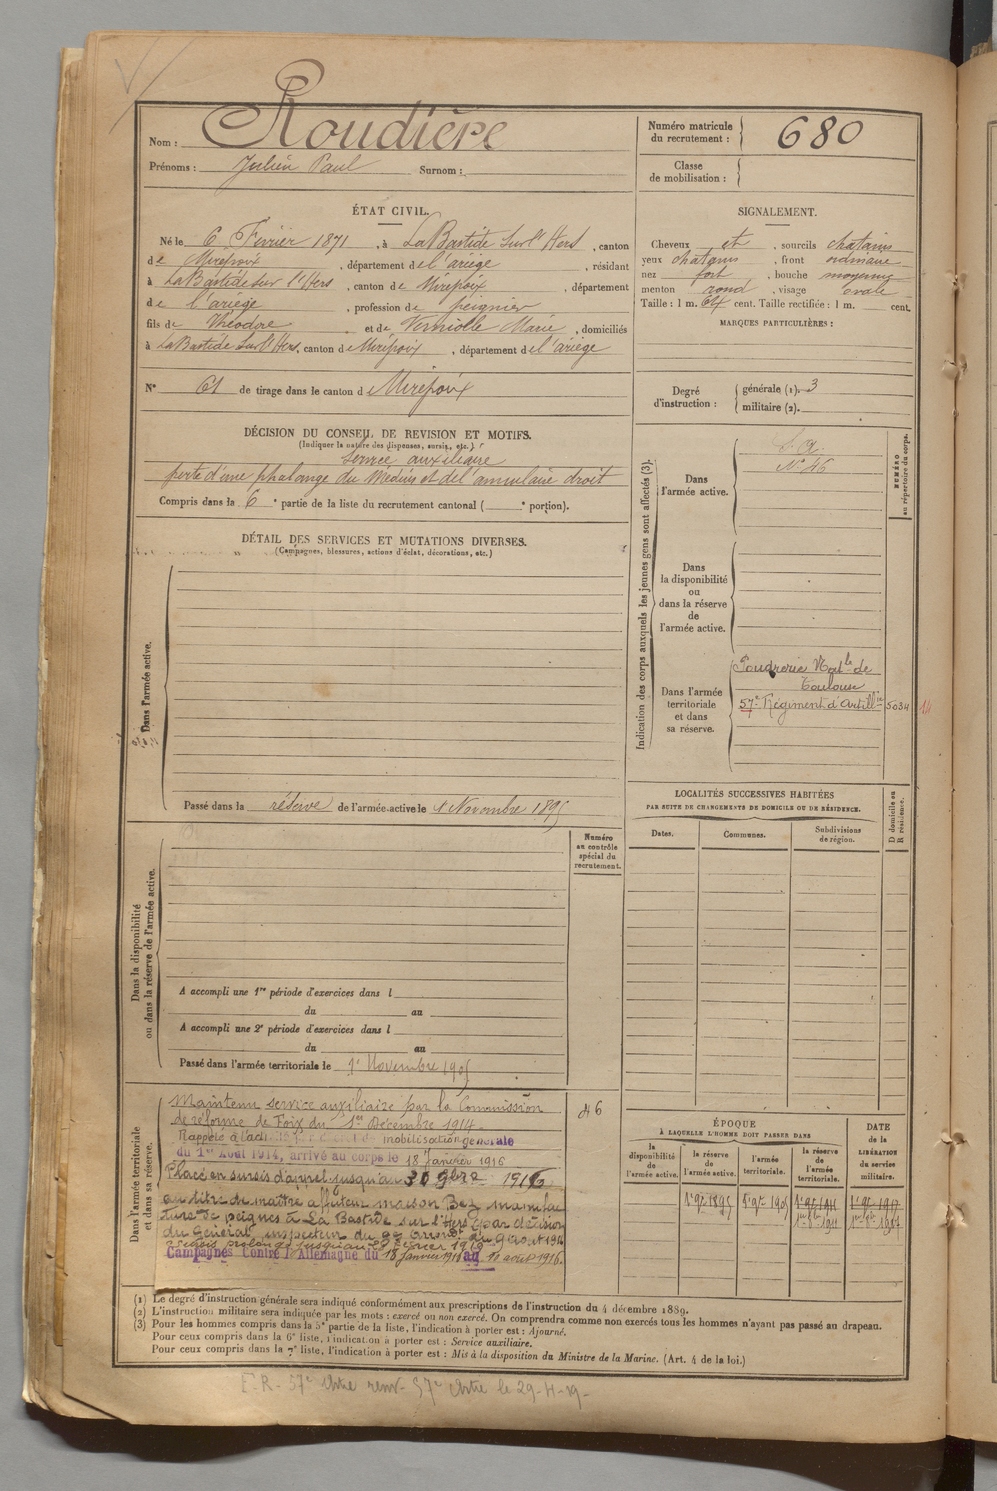 Nom : Roudière
Prénoms : Julien Paul Surnom :
Numéro matricule du recrutement : 680
Classe de mobilisation :
ÉTAT CIVIL.
Né le 6 Février 1871, à LaBastide Sur l'Hers, canton
de Mirepoix, département de l'ariège, résidant
à LaBastide sur l'Hers, canton de Mirepoix, département
de l'ariège, profession de peignier
fils de Théodore et de Verniolle Marie, domiciliés
à LaBastide Sur l'Hers, canton de Mirepoix, département de l'ariège
N° 61 de tirage dans le canton de Mirepoix
SIGNALEMENT.
Cheveux et, sourcils chatains
yeux chatains, front ordinaire
nez fort, bouche moyenne
menton rond, visage ovale
Taille : 1 m. 64 cent. Taille rectifiée : 1 m. cent.
MARQUES PARTICULIÈRES :
Degré d'instruction : générale (1). 3
militaire (2).
DÉCISION DU CONSEIL DE REVISION ET MOTIFS.
(Indiquer la nature des dispenses, sursis, etc.)
Service auxiliaire
perte d'une phalange du Médius et de l'annulaire droit
Compris dans la 6e partie de la liste du recrutement cantonal (e portion).
DÉTAIL DES SERVICES ET MUTATIONS DIVERSES.
(Campagnes, blessures, actions d'éclat, décorations, etc.)
Dans l'armée active.
Passé dans la réserve de l'armée active le 1 Novembre 1895
Indication des corps auxquels les jeunes gens sont affectés (3).
NUMÉRO au répertoire du corps.
Dans l'armée active.
S.A.
N° 46
Dans la disponibilité ou dans la réserve de l'armée active.
Dans l'armée territoriale et dans sa réserve.
Poudrerie Natle de
Toulouse
57e Régiment d'Artillie 5034 14
LOCALITÉS SUCCESSIVES HABITÉES
PAR SUITE DE CHANGEMENTS DE DOMICILE OU DE RÉSIDENCE.
Dates. Communes. Subdivisions de région. D domicile ou R résidence.
Numéro au contrôle spécial du recrutement.
Dans la disponibilité ou dans la réserve de l'armée active.
A accompli une 1re période d'exercices dans l
du au
A accompli une 2e période d'exercices dans l
du au
Passé dans l'armée territoriale le 1er Novembre 1905
Dans l'armée territoriale et dans sa réserve.
46
Maintenu service auxiliaire par la Commission
de réforme de Foix du 1er Décembre 1914.
Rappelé à l'acti mobilisation générale
du 1er Août 1914, arrivé au corps le 18 Janvier 1916
Placé en sursis d'appel jusqu'au 30 9bre 1916
au titre de maître affuteur maison Bez manufac
ture de peignes à La Bastide sur l'Hers (par décision
du Général inspecteur du
Sursis prolongé jusqu'au
Campagnes Contre l'Allemagne du 18 janvier 1916 au 11 août 1916.
ÉPOQUE
À LAQUELLE L'HOMME DOIT PASSER DANS
la disponibilité de l'armée active. la réserve de l'armée active. l'armée territoriale. la réserve de l'armée territoriale. DATE de la LIBÉRATION du service militaire.
1er 9bre 1895 1er 9bre 1905 1er 9bre 1911 1er 9bre 1917
(1) Le degré d'instruction générale sera indiqué conformément aux prescriptions de l'instruction du 4 décembre 1889.
(2) L'instruction militaire sera indiquée par les mots : exercé ou non exercé. On comprendra comme non exercés tous les hommes n'ayant pas passé au drapeau.
(3) Pour les hommes compris dans la 5e partie de la liste, l'indication à porter est : Ajourné.
Pour ceux compris dans la 6e liste, l'indication à porter est : Service auxiliaire.
Pour ceux compris dans la 7e liste, l'indication à porter est : Mis à la disposition du Ministre de la Marine. (Art. 4 de la loi.)
F.R. 57e Artie renv. 57e Artie le 29-4-19-